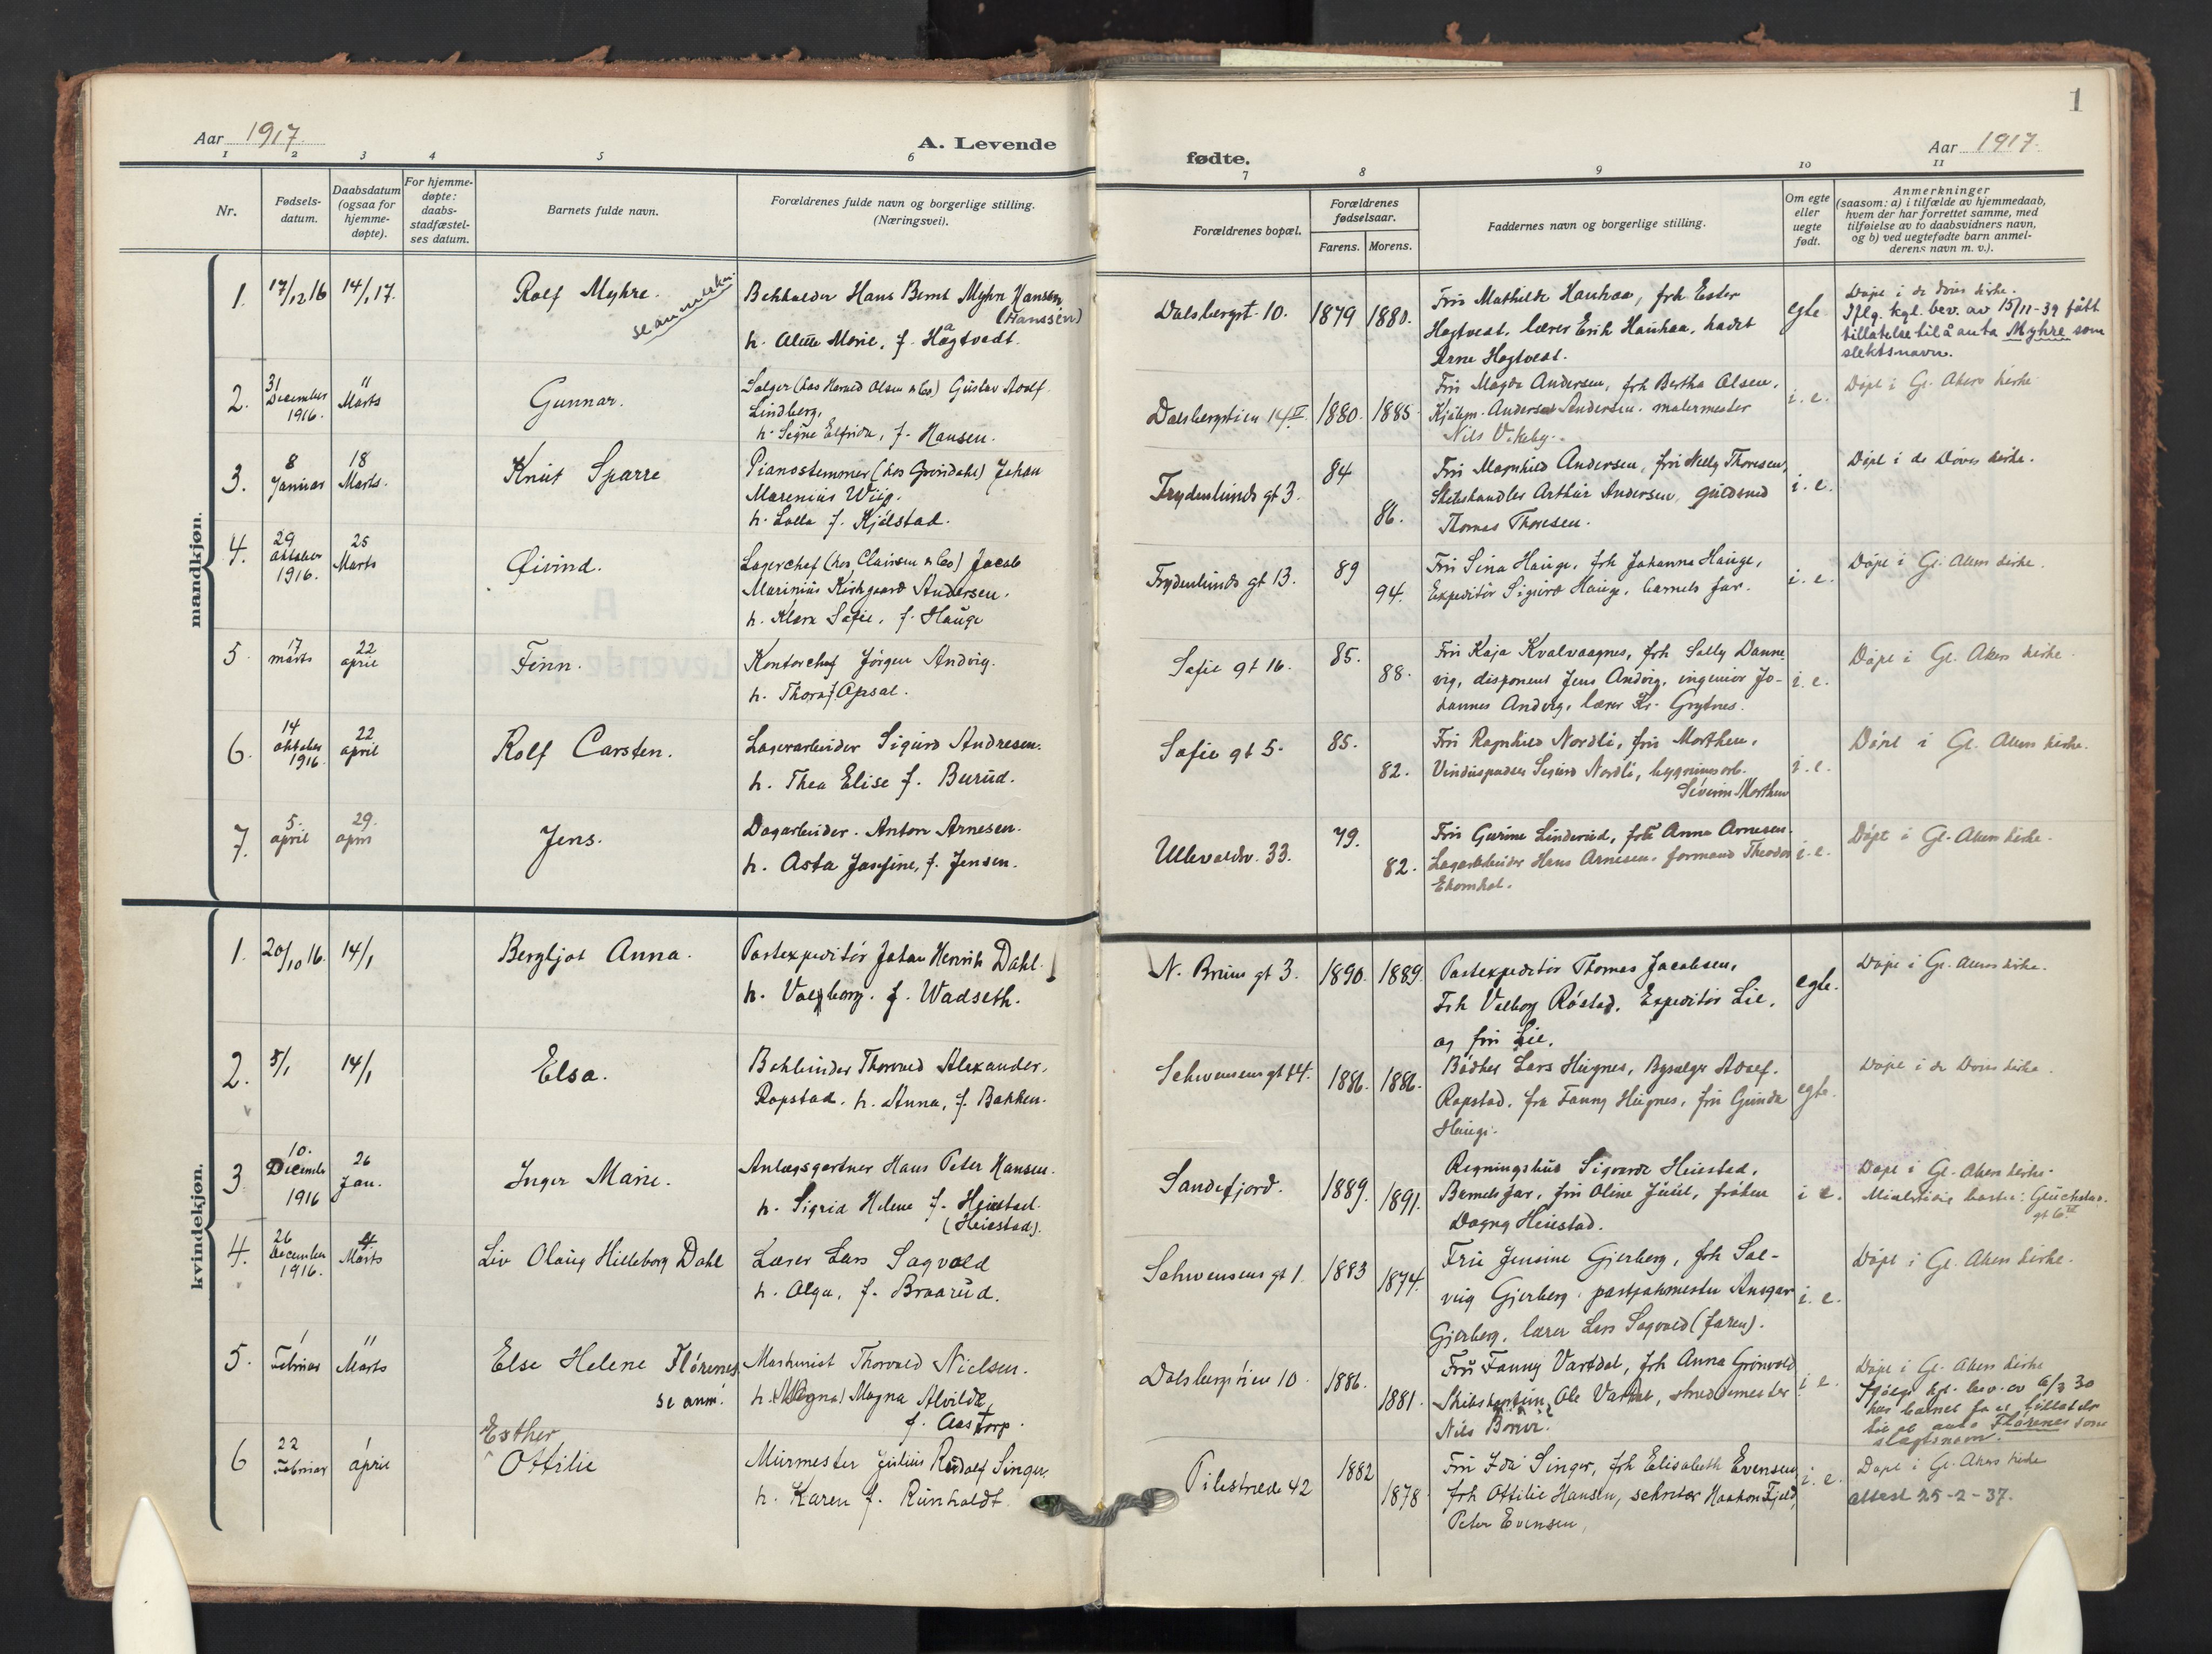 1
Aar 1917.
A. Levende
fødte.
Aar 1917.
1 2 3 4 5 6
7 8 9 10 11
Nr.
Fødsels-
datum.
Daabsdatum
(ogsaa for
hjemme-
døpte).
For hjemme-
døpte:
daabs-
stadfæstel-
ses datum.
Barnets fulde navn.
Forældrenes fulde navn og borgerlige stilling.
(Næringsvei).
Forældrenes bopæl.
Forældrenes
fødselsaar.
Farens. Morens.
Faddernes navn og borgerlige stilling.
Om egte
eller
uegte
født.
Anmerkninger
(saasom: a) i tilfælde av hjemmedaab,
hvem der har forrettet samme, med
tilføielse av to daabsvidners navn,
og b) ved uegtefødte barn anmel-
derens navn m. v.).
mandkjøn.
1. 17/12 16 14/1 17.
Rolf Myhre.
Hans Bernt Myhre Hansen
(Hanssen)
h. Marie, f. Hagtvedt.
Dalsbergst. 10. 1879 1880.
Fru Mathilde Hauhaa, frk Ester
Hagtvedt, lærer Erik Hauhaa, kadet
Arne Hagtvedt.
egte
Døpt i de Døves kirke.
Iflg. kgl. bev. av 15/11-39 fått
tillatelse til å anta Myhre som
slektsnavn.
2. 31 December 1916. 11 Marts
Gunnar.
Selger (hos Harald Olsen & Co) Gustav Adolf
Lindberg,
h. Signe Elfrida, f. Hansen.
Dalsbergstien 14 IV 1880. 1885
Fru Magda Andersen, frk Bertha Olsen,
Kjøbm. Anders Andersen. malermester
Nils
i. e.
Døpt i Gl. Akers kirke
3. 8 Januar 18 Marts.
Knut Sparre
Pianostemmer (hos Grøndahl) Johan
Marenius Wiig.
h. Lalla f. Kjølstad.
Frydenlunds gt 3. 84 86.
Fru Magnhild Andersen, fru Nelly Thoresen,
Arthur Andersen, guldsmed
Thomas Thoresen.
i. e.
Døpt i de Døves kirke.
4. 29 oktober 1916. 25 Marts
Øivind.
Lagerchef (hos Clausen & Co) Jacob
Marinius Kirkgaard Andersen.
h. Klara Sofie, f. Hauge
Frydenlunds gt 13. 89 94.
Fru Sina Hauge, frk Johanna Hauge,
Expeditør Sigurd Hauge, barnets far.
i. e.
Døpt i Gl. Akers kirke.
5. 17 marts 22 april
Finn.
Kontorchef Jørgen Andvig.
h. Thora f. Opsal.
Sofie gt 16. 85. 88.
Fru Kaja Kvalvaagnes, frk Sally Danne-
vig, disponent Jens Andvig, ingeniør Jo-
hannes Andvig, lærer Kr. Grytnes.
i. e.
Døpt i Gl. Akers kirke.
6. 14 oktober 1916 22 april
Rolf Carsten.
Lagerarbeider Sigurd Andresen.
h. Thea Elise f. Burud.
Sofie gt 5. 85. 82.
Fru Ragnhild Nordli, fru Morthen,
Vinduspudser Sigurd Nordli, bygningsarb.
Severin Morthen
i. e.
Døpt i Gl. Akers kirke.
7. 5. april 29. april
Jens.
Dagarbeider. Anton Arnesen.
h. Asta Josefine, f. Jensen.
Ullevaldsv. 33. 79. 82.
Fru Gurine Linderud, frk Anna Arnesen.
Lagerarbeider Hans Arnesen, formand Theodor
Ekornhol.
i. e.
Døpt i Gl. Akers kirke.
kvindekjøn.
1. 20/10 16. 14/1
Bergljot Anna.
Postexpeditør Johan Henrik Dahl.
h. Valborg. f. Wadseth.
N. Bruns gt 3. 1890. 1889.
Postexpeditør Thomas Jacobsen,
Frk Valborg Røstad. Expeditør Lie,
og fru Lie.
egte.
Døpt i Gl. Akers kirke.
2. 5/1 14/1
Elsa.
Thorvald Alexander
Ropstad. h. Anna, f. Bakken.
Schwensens gt 14. 1886. 1886.
Bødker Lars Hugnes, Adolf
Ropstad, fru Fanny Hugnes, fru Gunda
Hauge.
egte.
Døpt i de Døves kirke.
3. 10. December 1916 26 Jan.
Inger Marie.
Anlægsgartner Hans Peter Hansen.
h. Sigrid Helene f. Heiestad.
(Heiestad).
Sandefjord. 1889. 1891.
Sigvard Heiestad,
Barnets far, fru Oline Juul, frøken
Dagny Heiestad.
i e.
Døpt i Gl. Akers kirke.
Midlertidig bosted: Glückstad.
gt 6 III
4. 26 December 1916. 4 Marts
Liv Olaug Hilleborg Dahl
Lærer Lars Sagvold
h. Olga, f. Braarud.
Schwensens gt 1 1883 1874.
Fru Jensine Gjerberg, frk Sol-
veig Gjerberg, postpakmester Ansgar
Gjerberg, lærer Lars Sagvold (faren).
i. e.
Døpt i Gl. Akers kirke.
5. 1 Februar 11 Marts
Else Helene Flørenes
se anm.
Maskinist Thorvald Nielsen.
h. Magna Alvilde,
f. Aastorp.
Dalsbergstien 10. 1886. 1881.
Fru Fanny Vartdal, frk Anna Grønvold
Ole Vartdal, smedemester
Nils
i e.
Døpt i Gl. Akers kirke
Ifølge kgl. bev. av 6/3 30
har barnet faat tilladelse
til at anta Flørenes som
slægtsnavn.
6 22 Februar 1 april
Esther
Ottilie
Murmester Julius Rudolf Singer.
h. Karen f. Runholdt.
Pilestræde 42 1882 1878
Fru Ida Singer, frk Elisabeth Evensen,
frk Ottilie Hansen, sekretær Haakon Fjeld,
Peter Evensen,
i e.
Døpt i Gl. Akers kirke
attest 25-2-37.